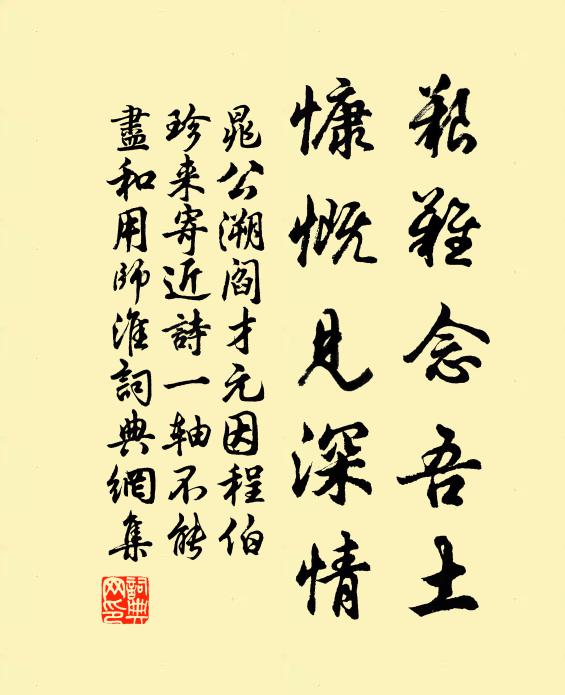 艱難念吾土
慷慨見深情
晁公溯閻才元因程伯
珍来寄近詩一軸不能
盡和用師淮詞典網集
詞典
网印